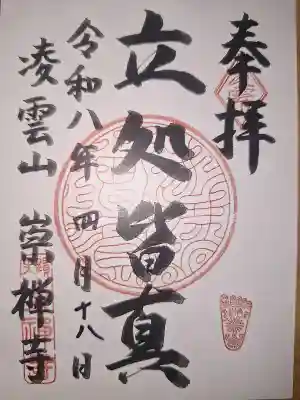 奉拝
立処皆真
令和八年四月十八日
凌雲山 崇禅寺